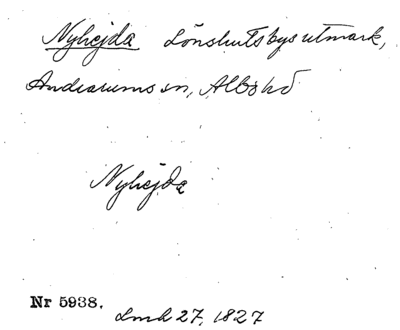 Nyhejda Lönshultsbys utmark,
Andrarums sn, Albo hd
Nyhejda
Nr 5938.
Lmh 27, 1827